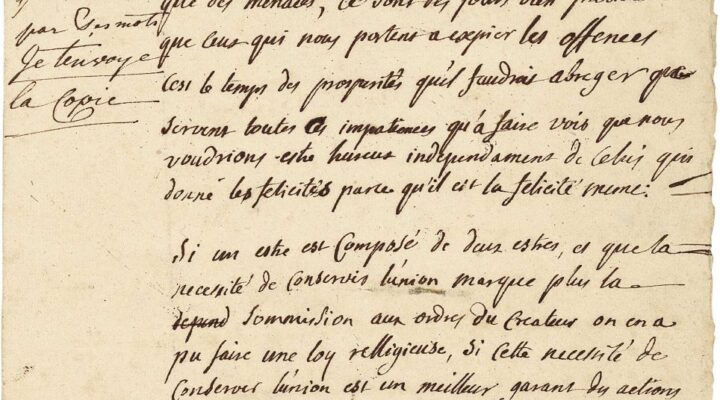 que des menaces, ce sont des jours bien
que ceux qui nous portent a expier les offences
c'est le temps des prosperités qu'il faudroit abreger que
servent toutes ces impatiences qu'a faire voir que nous
voudrions estre hureux independament de celui qui
donne les felicités parce qu'il est la felicité meme.
par ses mots
Je t'envoye
la Copie
Si un estre est Composé de deux estres, et que la
necessité de Conserver l'union marque plus la
depend sommission aux ordres du Createur on en a
pu faire une loy relligieuse, si cette necessité de
Conserver l'union est un meilleur garant des actions